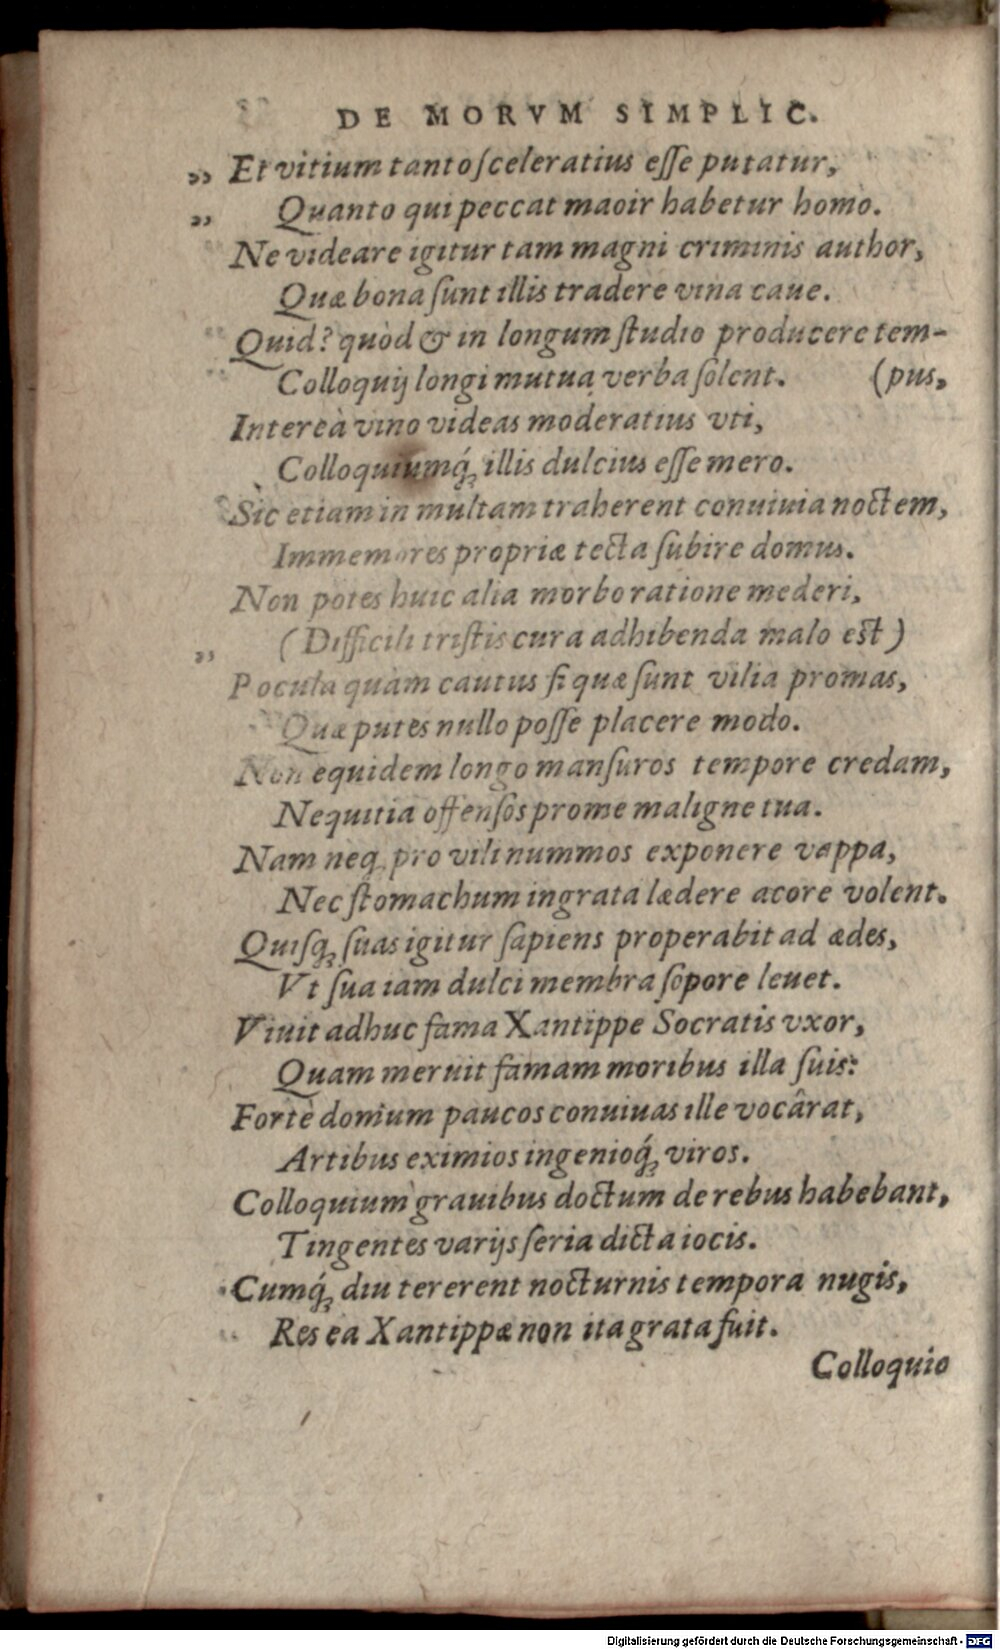 DE MORVM SIMPLIC.
„ Et vitium tanto sceleratius esse putatur,
„ Quanto qui peccat maoir habetur homo.
Ne videare igitur tam magni criminis author,
Quæ bona sunt illis tradere vina caue.
Quid? quòd & in longum studio producere tem-
Colloquij longi mutua verba solent. (pus,
Intereà vino videas moderatius vti,
Colloquiumq́; illis dulcius esse mero.
Sic etiam in multam traherent conuiuia noctem,
Immemores propriæ tecta subire domus.
Non potes huic alia morbo ratione mederi,
„ (Difficili tristis cura adhibenda malo est)
Pocula quàm cautus si quæ sunt vilia promas,
Quæ putes nullo posse placere modo.
Non equidem longo mansuros tempore credam,
Nequitia offensos prome maligne tua.
Nam neq; pro vili nummos exponere vappa,
Nec stomachum ingrata lædere acore volent.
Quisq; suas igitur sapiens properabit ad ædes,
Vt sua iam dulci membra sopore leuet.
Viuit adhuc fama Xantippe Socratis vxor,
Quam meruit famam moribus illa suis:
Fortè domum paucos conuiuas ille vocârat,
Artibus eximios ingenioq́; viros.
Colloquium grauibus doctum de rebus habebant,
Tingentes varijs seria dicta iocis.
Cumq́; diu tererent nocturnis tempora nugis,
Res ea Xantippæ non ita grata fuit.
Colloquio
Digitalisierung gefördert durch die Deutsche Forschungsgemeinschaft - DFG